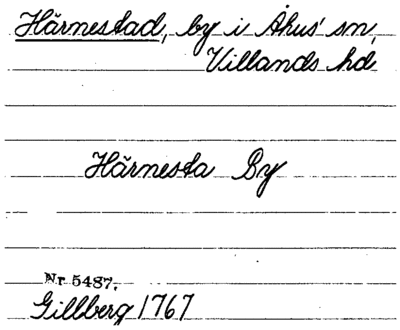 Härnestad, by i Åhus' sn,
Villands hd
Härnesta By
Nr 5487.
Gillberg 1767